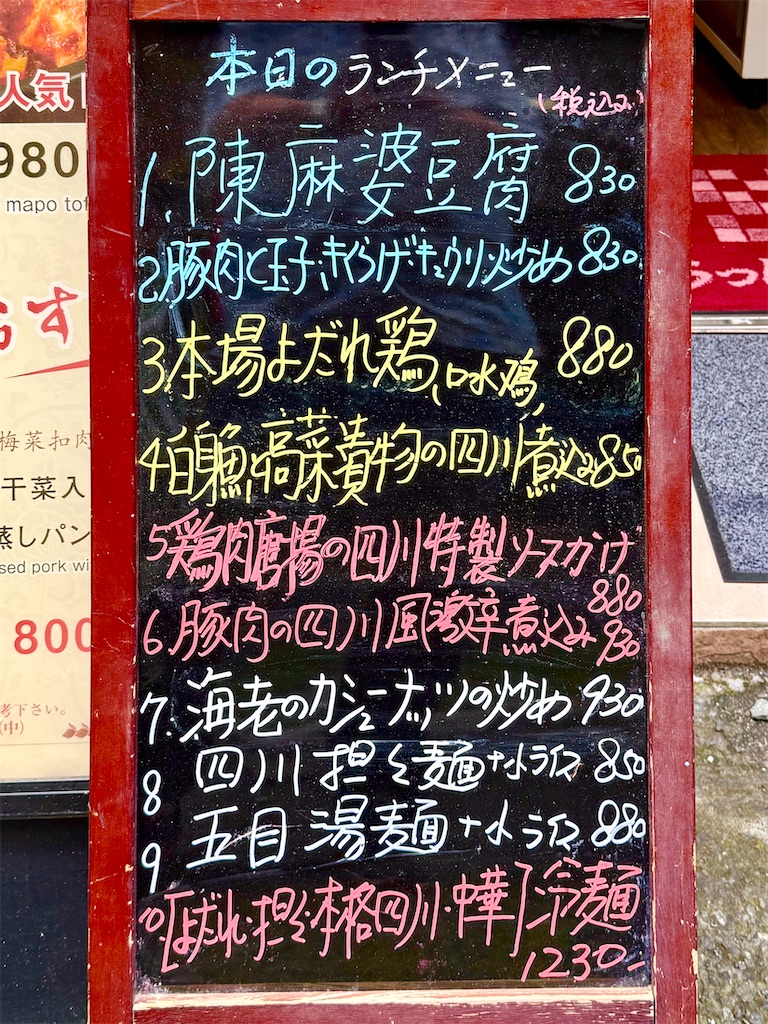 本日のランチメニュー
(税込み)
1.陳麻婆豆腐 830
2.豚肉と玉子、きくらげ、キュウリ炒め 830
3.本場よだれ鶏、口水鶏 880
4白身魚と高菜漬物の四川煮込み850
5鶏肉唐揚の四川特製ソースかけ
880
6.豚肉の四川風激辛煮込み 930
7.海老のカシューナッツの炒め 930
8 四川担々麺+小ライス 850
9 五目湯麺+小ライス 880
10「よだれ・担々・本格四川・中華」冷麺
1230-
人気
980
mapo tof
おす
梅菜扣肉
干菜入
蒸しパン
sed pork wi
800
考下さい。
(中)
らっ